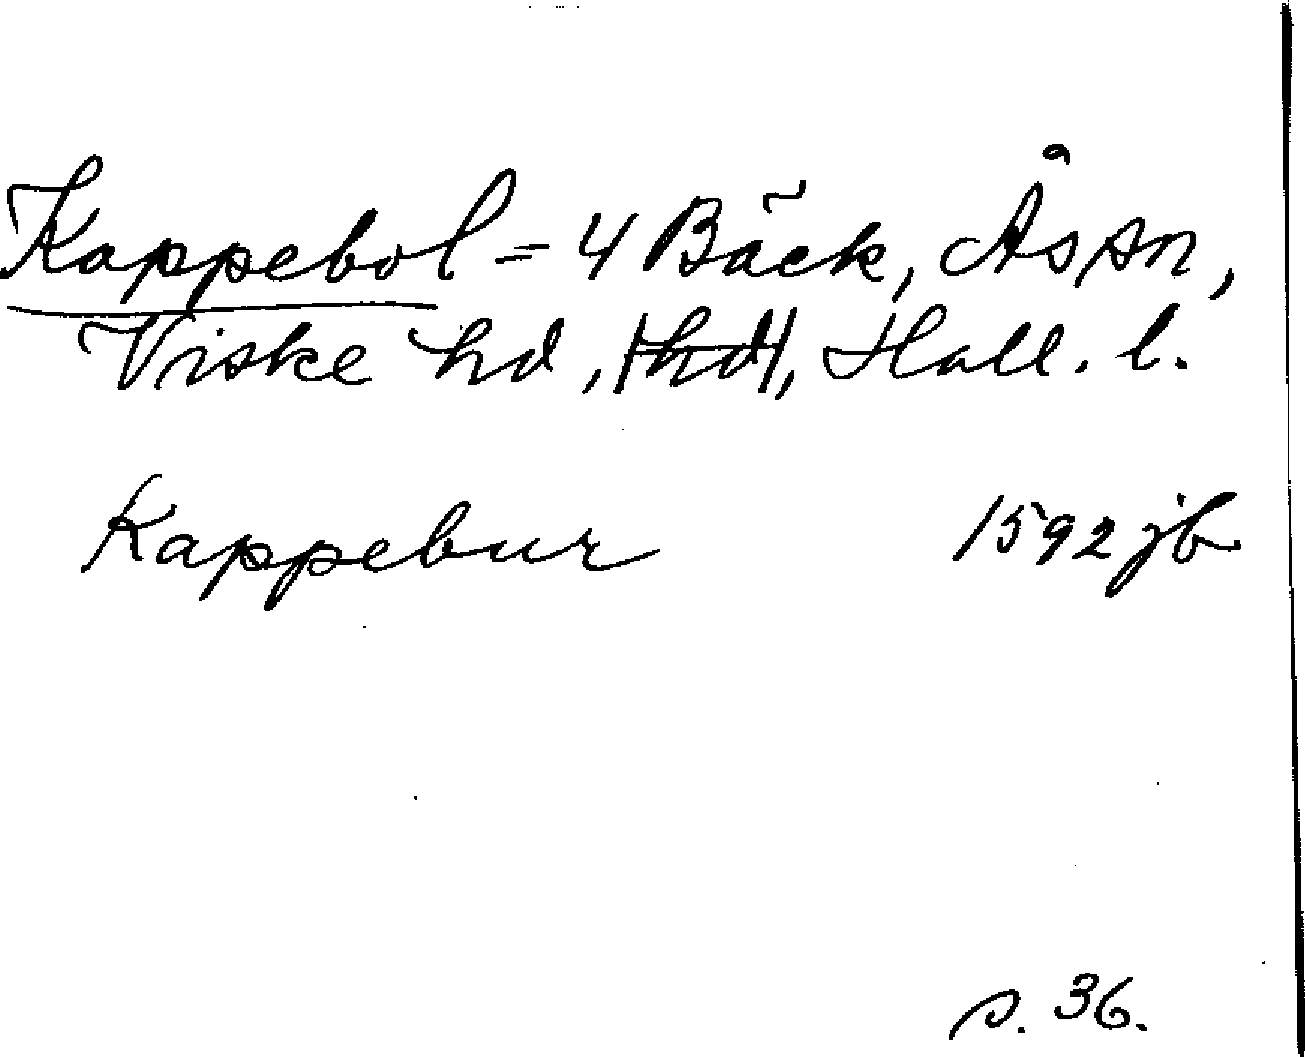 Kappebol = 4 Bäck, Ås sn,
Viske hd, Hall. l.
Kappebur 1592 jb
s. 36.